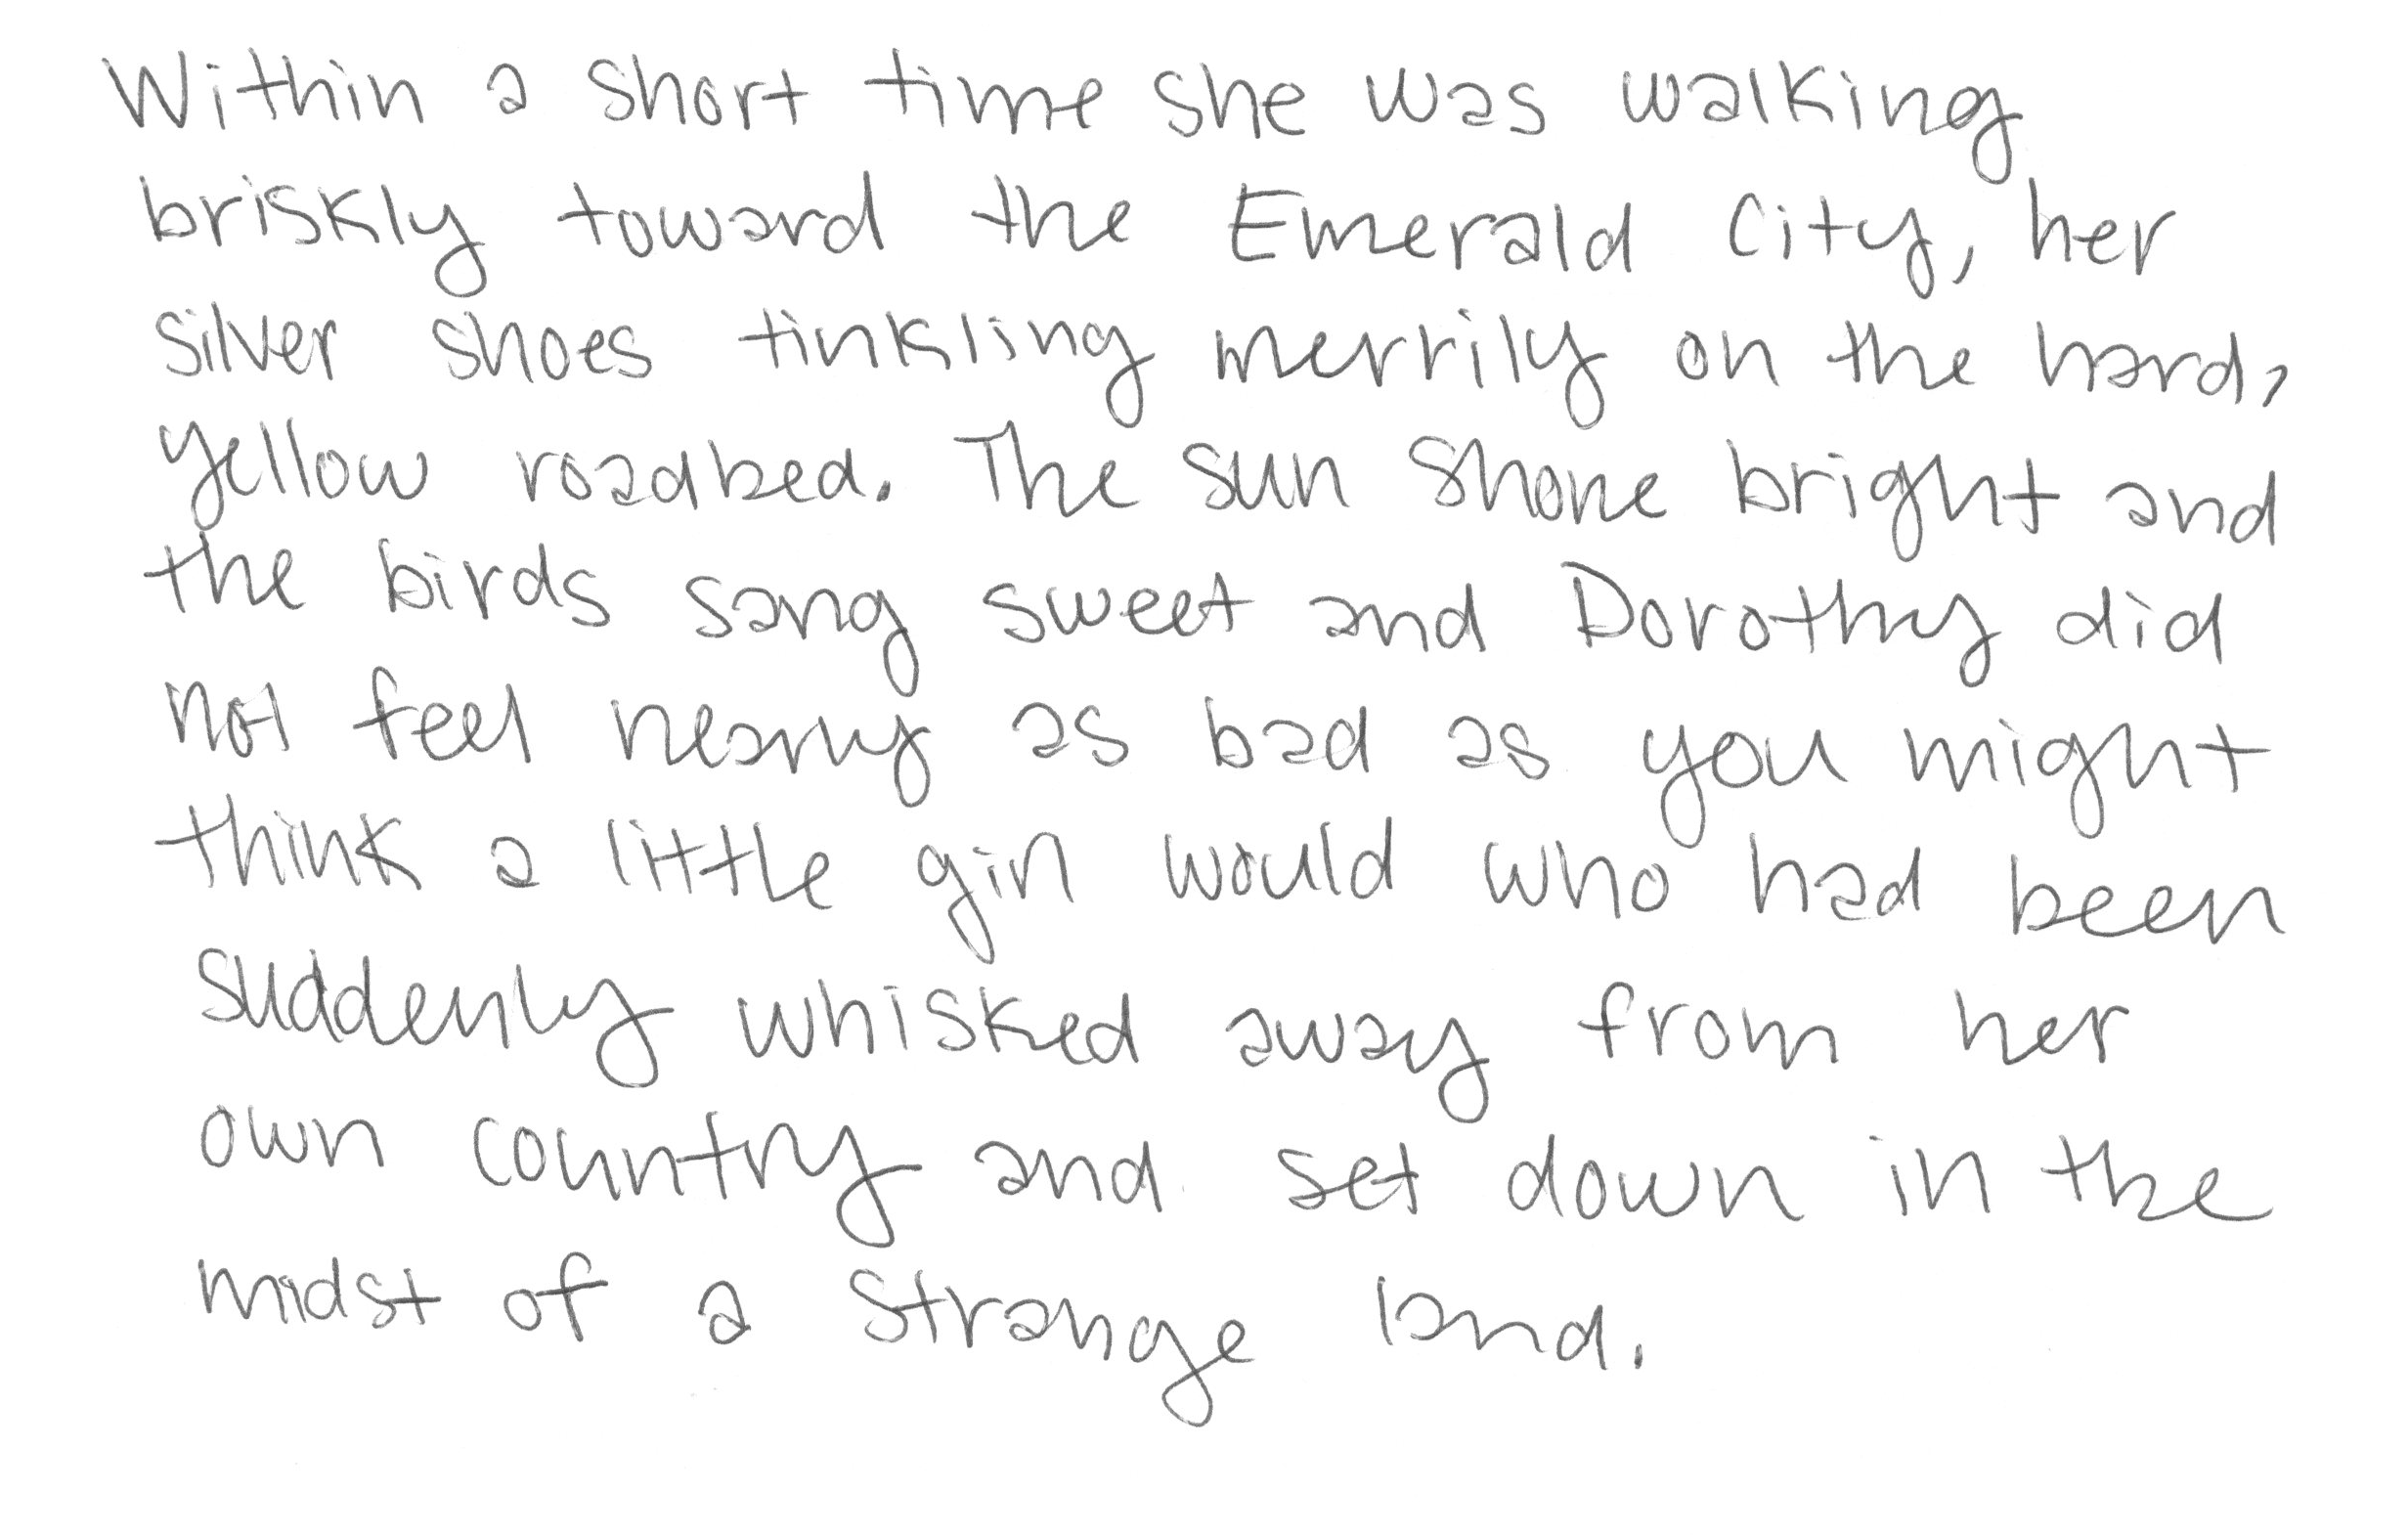 Within a short time she was walking
briskly toward the Emerald City, her
silver shoes tinkling merrily on the hard,
yellow roadbed. The sun shone bright and
the birds sang sweet and Dorothy did
not feel nearly as bad as you might
think a little girl would who had been
suddenly whisked away from her
own country and set down in the
midst of a strange land.